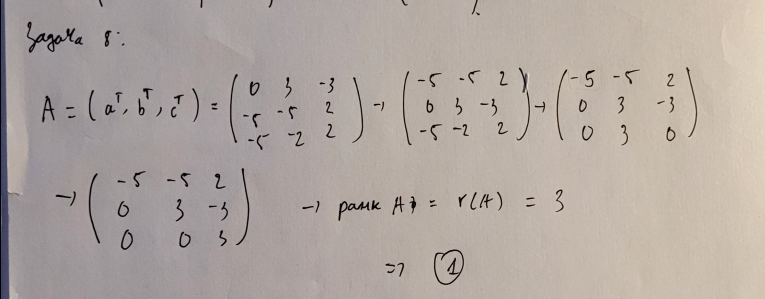 Задача 8:
A = (aᵀ, bᵀ, cᵀ) = ( 0 3 -3 ; -5 -5 2 ; -5 -2 2 ) → ( -5 -5 2 ; 0 3 -3 ; -5 -2 2 ) → ( -5 -5 2 ; 0 3 -3 ; 0 3 0 )
→ ( -5 -5 2 ; 0 3 -3 ; 0 0 3 ) → ранк A = r(A) = 3
=> 1